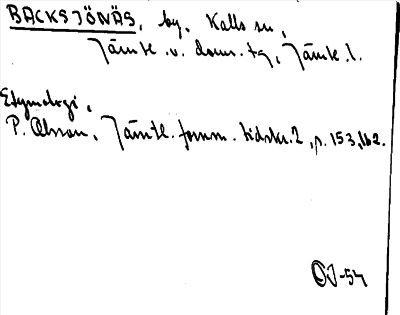 BACKSJÖNÄS, by, Kalls sn,
Jämtl. v. doms. tg, Jämtl. l.
Etymologi,
P. Olsson, Jämtl. fornm. tidskr. 2, p. 153, 162.
OJ-54